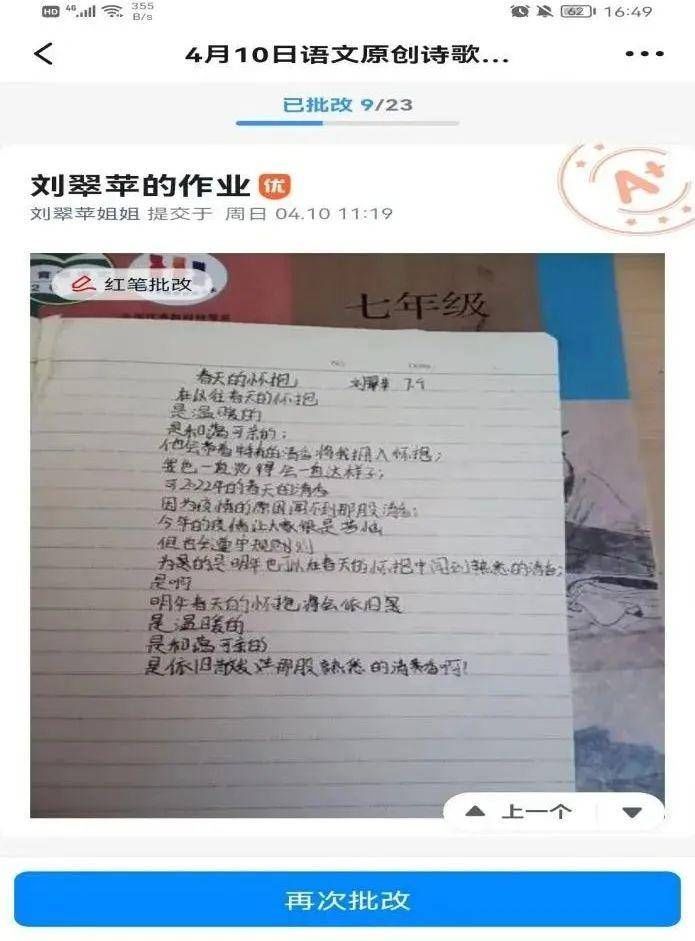 HD 4G 355 B/s 62 16:49
4月10日语文原创诗歌...
已批改 9/23
刘翠苹的作业 优
刘翠苹姐姐 提交于 周日 04.10 11:19
A+
红笔批改
七年级
NO.
DATE
春天的怀抱 刘翠苹 7.9
在以往春天的怀抱
是温暖的
是和蔼可亲的;
他会带着特有的清香将我拥入怀抱;
我一直觉得会一直这样子;
可2022年的春天的清香
因为疫情的原因闻不到那股清香;
今年的疫情让大家很是苦恼
但也会遵守规则
为的是明年也以在春天的怀抱中闻到熟悉的清香;
是啊
明年春天的怀抱将会依旧是
是温暖的
是和蔼可亲的
是依旧散发着那股熟悉的清香啊!
上一个
再次批改